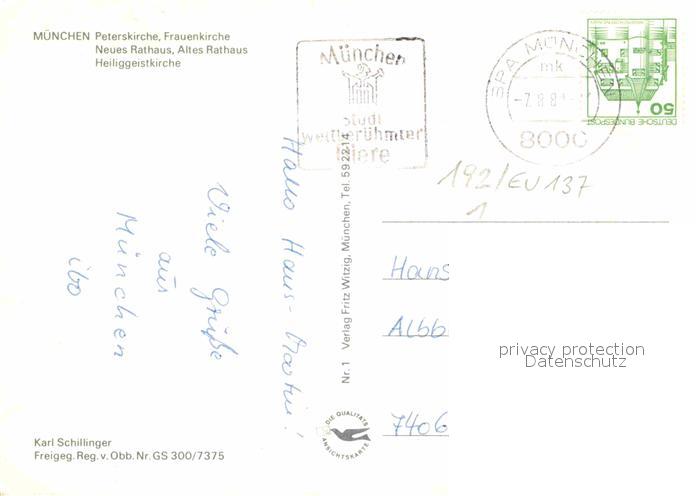 MÜNCHEN Peterskirche, Frauenkirche
Neues Rathaus, Altes Rathaus
Heiliggeistkirche
München
Stadt
weltberühmter
Biere
SPA MÜNCHEN
mk
8000
DEUTSCHE BUNDESPOST
50
192/EU 137
1
Hallo Hans-Martin!
Viele Grüße
aus
München
ibo
Nr. 1 Verlag Fritz Witzig, München, Tel. 59 22 14
Hans
Albb
7406
privacy protection
Datenschutz
DIE QUALITÄTS
ANSICHTSKARTE
Karl Schillinger
Freigeg. Reg. v. Obb. Nr. GS 300/7375